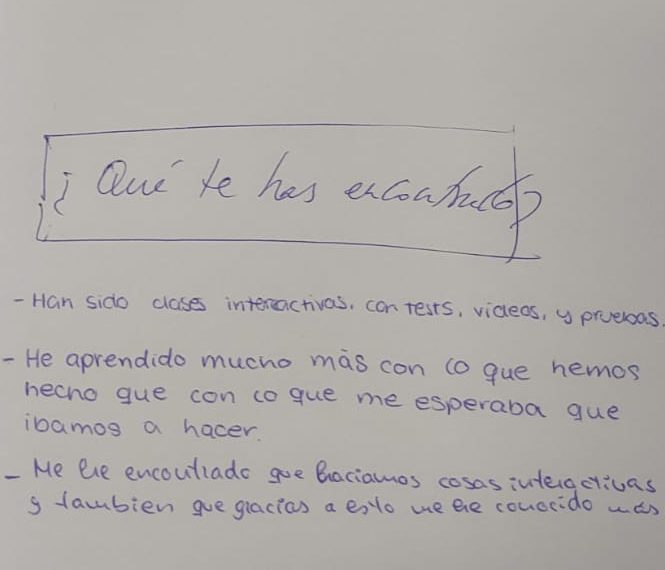 ¿Qué te has encontrado?
- Han sido clases interactivas, con tests, videos, y pruebas.
- He aprendido mucho más con lo que hemos
hecho que con lo que me esperaba que
ibamos a hacer.
- Me he encontrado que haciamos cosas interactivas
y tambien que gracias a esto me he conocido más